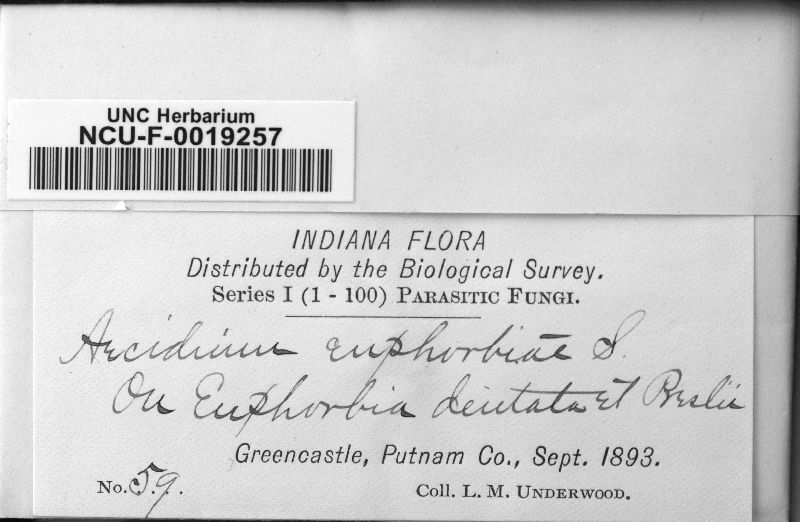 UNC Herbarium
NCU-F-0019257
INDIANA FLORA
Distributed by the Biological Survey.
Series I (1 - 100) PARASITIC FUNGI.
Aecidium euphorbiae S.
On Euphorbia dentata et Preslii
Greencastle, Putnam Co., Sept. 1893.
No. 59.
Coll. L. M. UNDERWOOD.